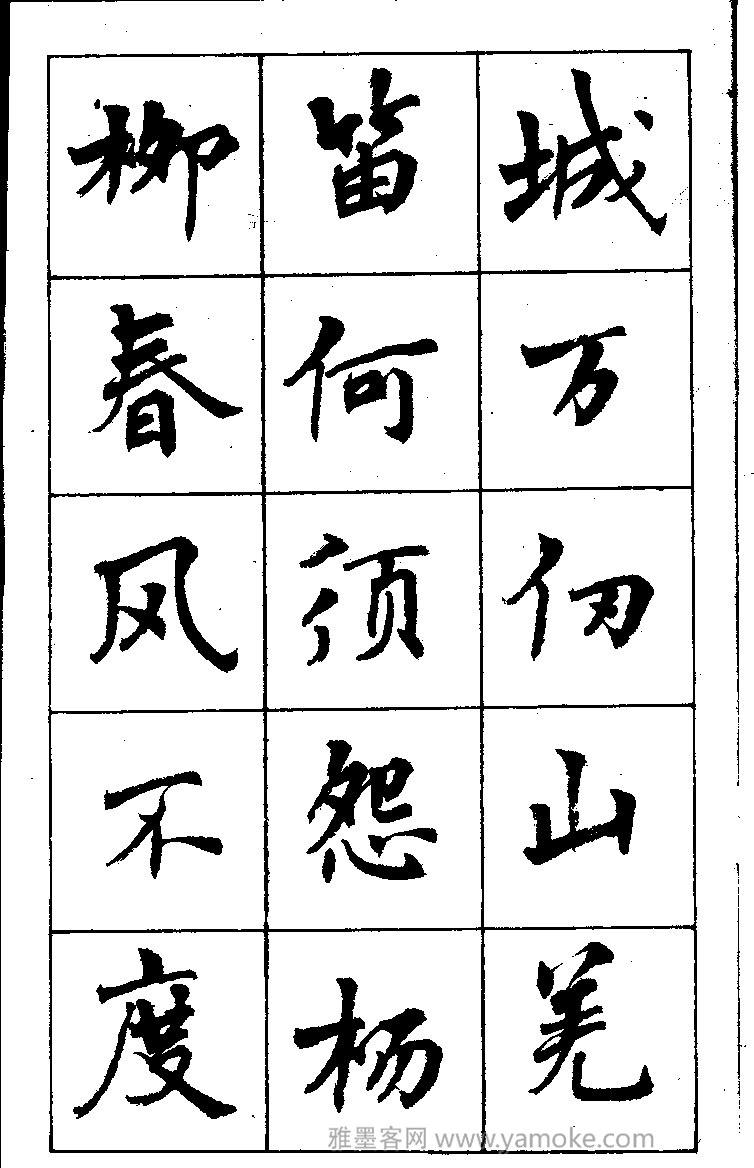 城万仞山羌
笛何须怨杨
柳春风不度
雅墨客网 www.yamoke.com